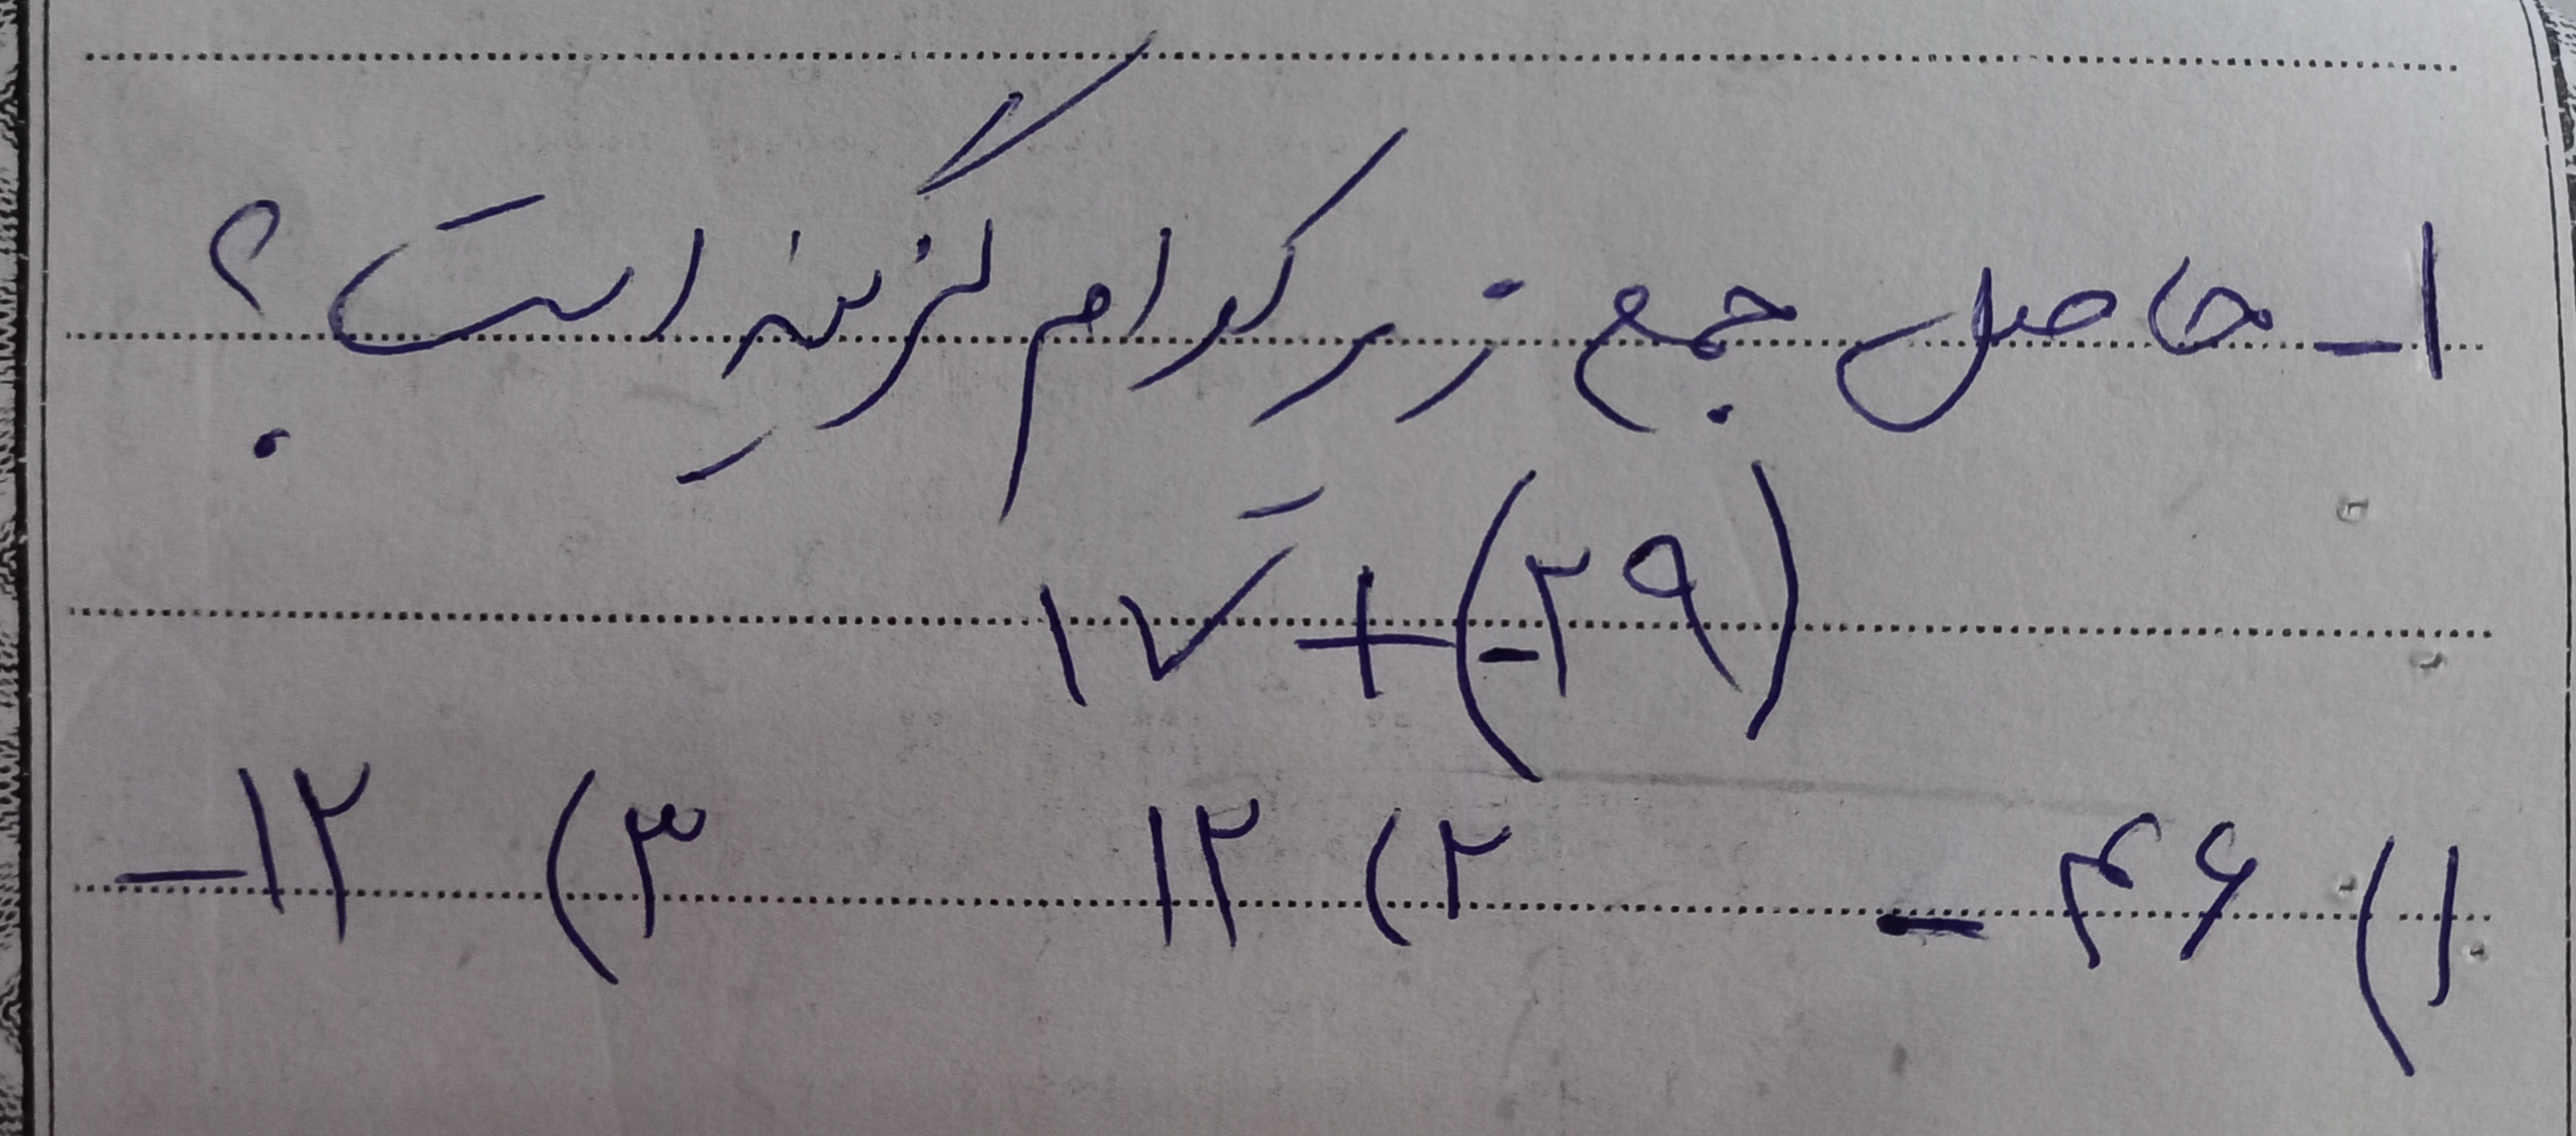 ۱- حاصل جمع زیر کدام گزینه است؟
۱۷ + (-۲۹)
۱) -۴۶ ۲) ۱۲ ۳) -۱۲